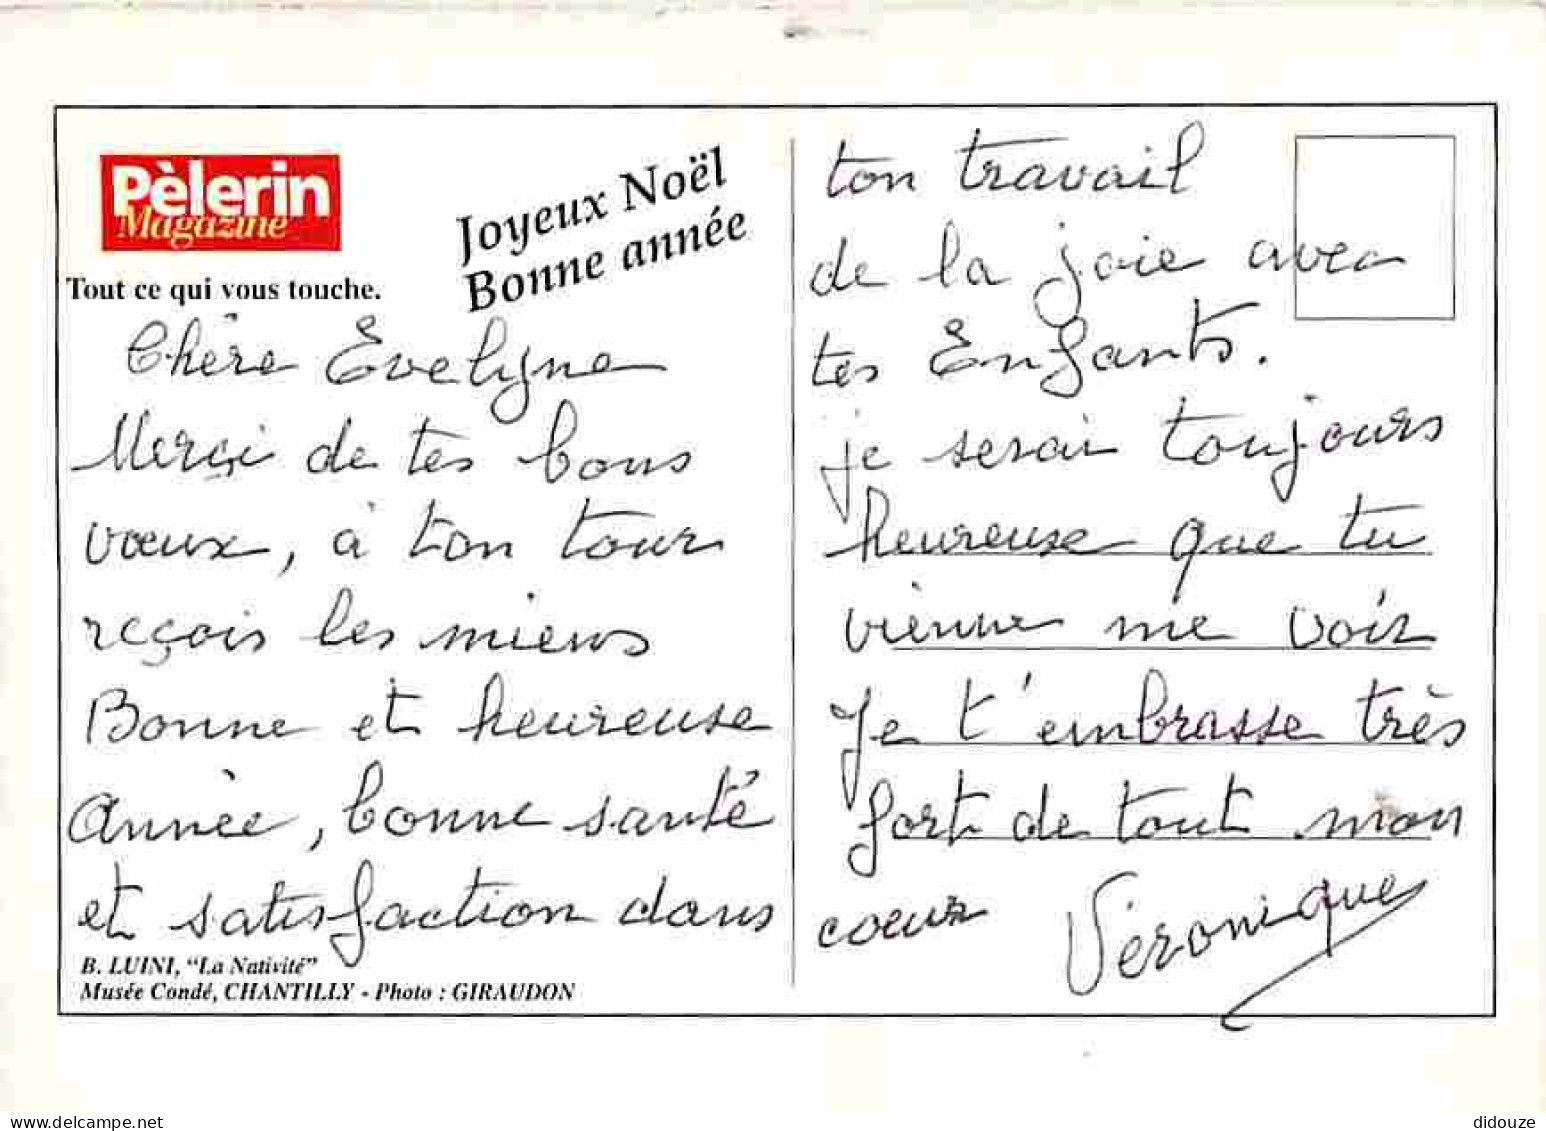 Pèlerin
Magazine
Tout ce qui vous touche.
Joyeux Noël
Bonne année
Chère Evelyne
Merçi de tes bons
vœux, à ton tour
reçois les miens
Bonne et heureuse
Année, bonne santé
et satisfaction dans
B. LUINI, “La Nativité”
Musée Condé, CHANTILLY - Photo : GIRAUDON
ton travail
de la joie avec
tes Enfants.
je serai toujours
heureuse que tu
vienne me voir
Je t'embrasse très
fort de tout mon
coeur Véronique
didouze